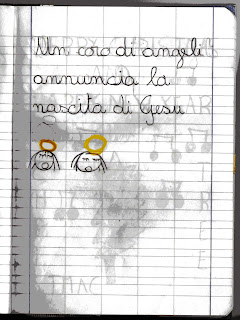 Un coro di angeli
annuncia la
nascita di Gesu